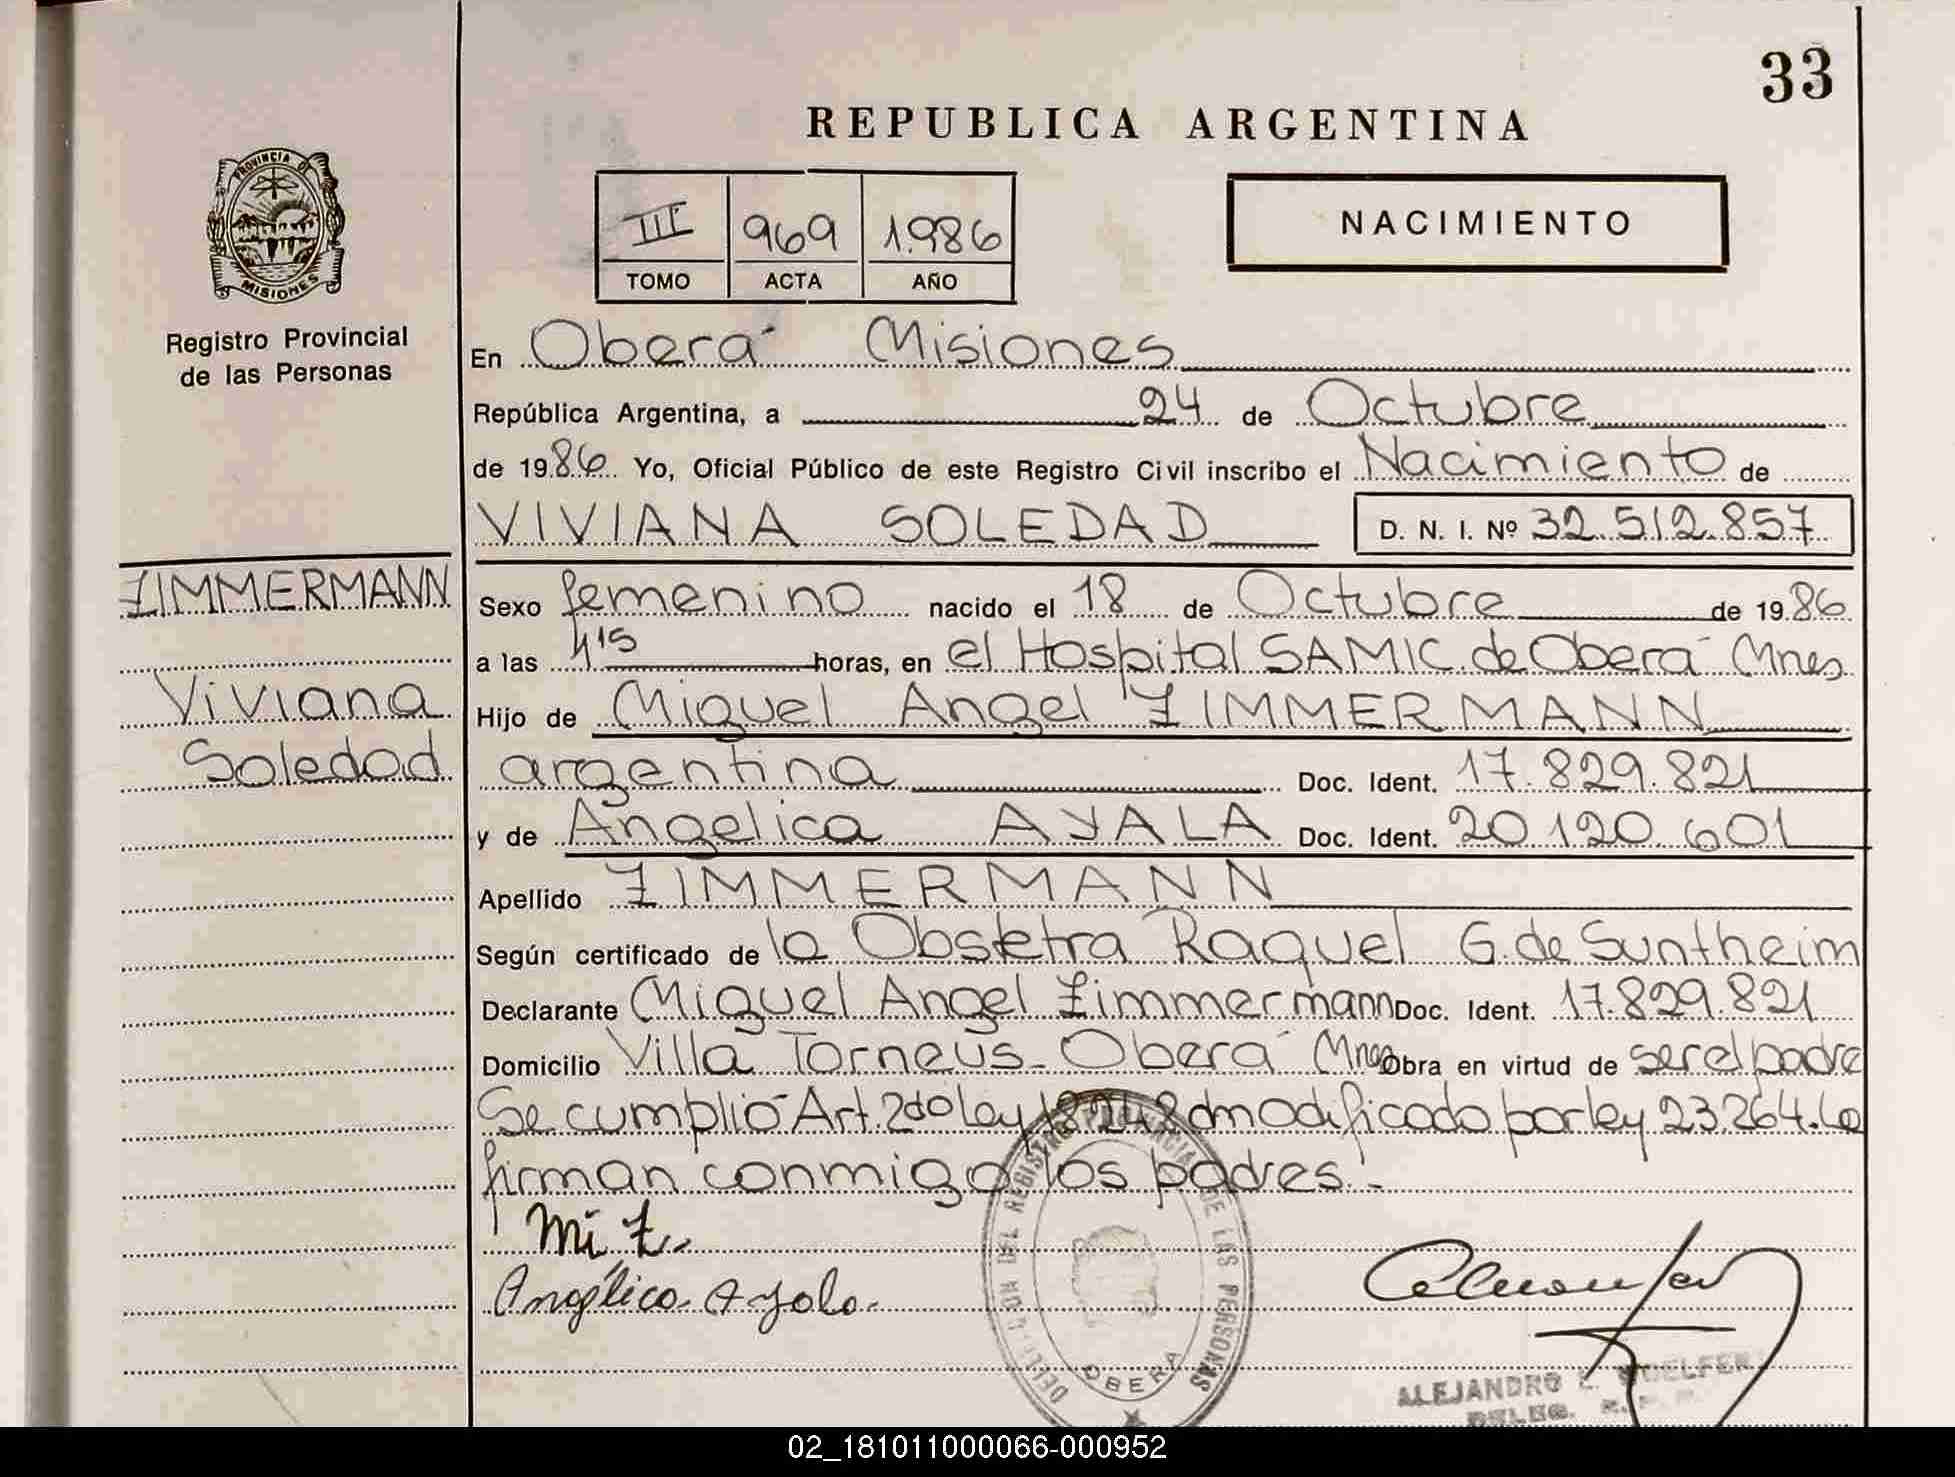 33
REPUBLICA ARGENTINA
PROVINCIA DE MISIONES
Registro Provincial
de las Personas
III 969 1.986
TOMO ACTA AÑO
NACIMIENTO
En Oberá Misiones
República Argentina, a 24 de Octubre
de 1986 Yo, Oficial Público de este Registro Civil inscribo el Nacimiento de
VIVIANA SOLEDAD D. N. I. Nº 32.512.857
ZIMMERMANN
Viviana
Soledad
Sexo femenino nacido el 18 de Octubre de 1986
a las 4 15 horas, en el Hospital SAMIC. de Oberá Mnes
Hijo de Miguel Angel ZIMMERMANN
argentina Doc. Ident. 17.829.821
y de Angelica AYALA Doc. Ident. 20.120.601
Apellido ZIMMERMANN
Según certificado de la Obstetra Raquel G. de Suntheim
Declarante Miguel Angel Zimmermann Doc. Ident. 17.829.821
Domicilio Villa Torneus - Oberá Mnes Obra en virtud de ser el padre
Se cumplió Art. 2do Ley modificado por ley 23.264.
firman conmigo los padres.-
Mi Z.
Angélica Ayala.
REGISTRO PROVINCIAL DE LAS PERSONAS
OBERA
ALEJANDRO
DELEG.
02_181011000066-000952